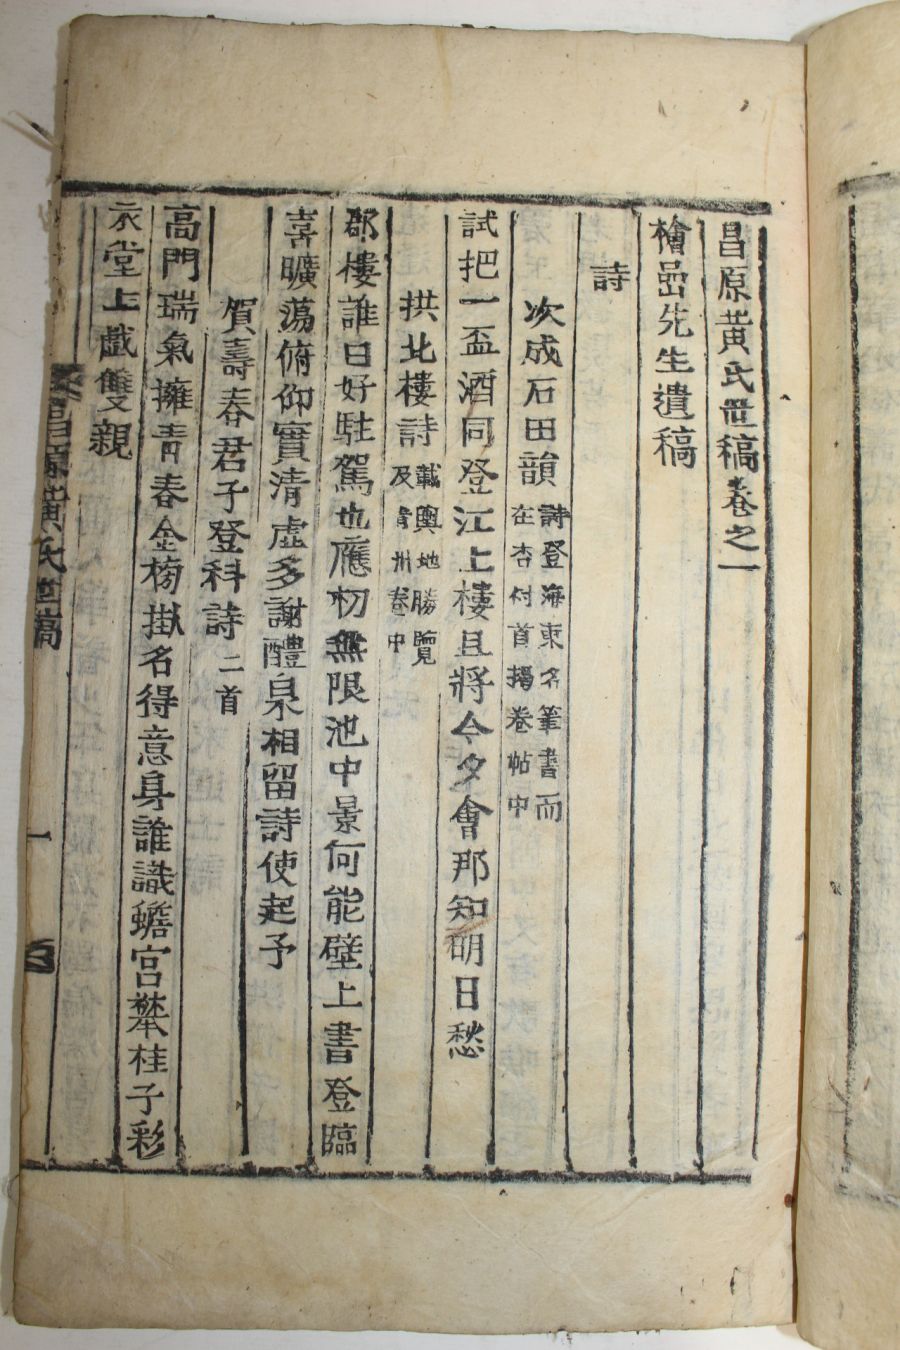 昌原黃氏世稿卷之一
檜嵒先生遺稿
詩
次成石田韻 詩登海東名筆書而
在杏村首揭卷帖中
試把一盃酒同登江上樓且將今夕會那知明日愁
拱北樓詩 載輿地勝覽
及青州卷中
郡樓誰曰好駐駕也應初無限池中景何能壁上書登臨
喜曠蕩俯仰實清虛多謝醴泉相留詩使起予
賀壽春君子登科詩 二首
高門瑞氣擁靑春金榜掛名得意身誰識蟾宮攀桂子彩
衣堂上戱雙親
昌原黃氏世稿
一